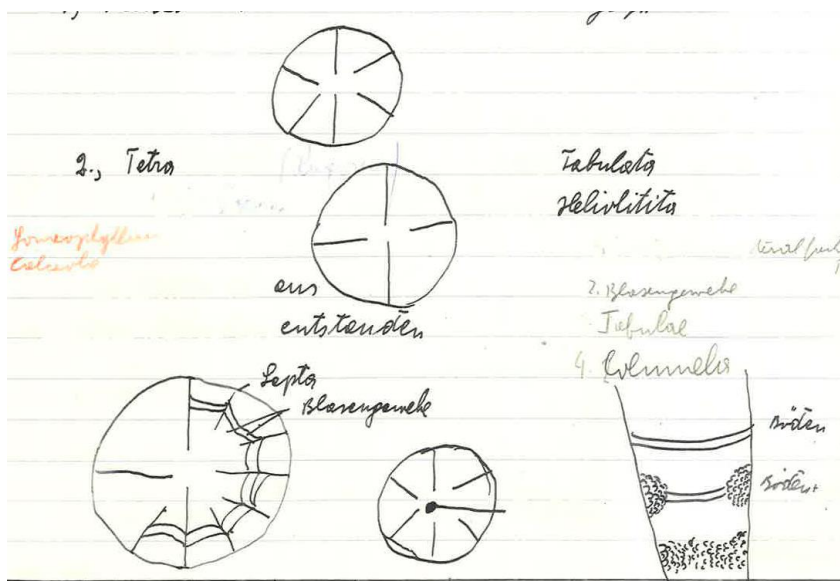 2., Tetra
Tabulata
Heliolitita
aus
entstanden
2. Blasengewebe
Tabulae
4. Columella
Septa
Blasengewebe
Böden
Böden+